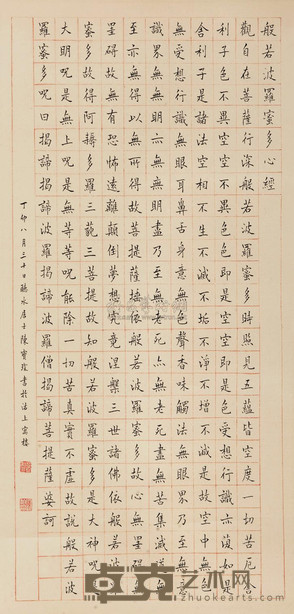 般若波羅蜜多心經
觀自在菩薩行深般若波羅蜜多時照見五蘊皆空度一切苦厄舍
利子色不異空空不異色色即是空空即是色受想行識亦復如是
舍利子是諸法空相不生不滅不垢不淨不增不減是故空中無色
無受想行識無眼耳鼻舌身意無色聲香味觸法無眼界乃至無意
識界無無明亦無無明盡乃至無老死亦無老死盡無苦集滅道無
智亦無得以無所得故菩提薩埵依般若波羅蜜多故心無罣礙無
罣礙故無有恐怖遠離顛倒夢想究竟涅槃三世諸佛依般若波羅
蜜多故得阿耨多羅三藐三菩提故知般若波羅蜜多是大神呪是
大明呪是無上呪是無等等呪能除一切苦真實不虛故說般若波
羅蜜多呪曰揭諦揭諦波羅揭諦波羅僧揭諦菩提薩婆訶
丁卯八月三十日聽水居士陳寶琛書於滬上寓樓
艺术网
www.artrade.com